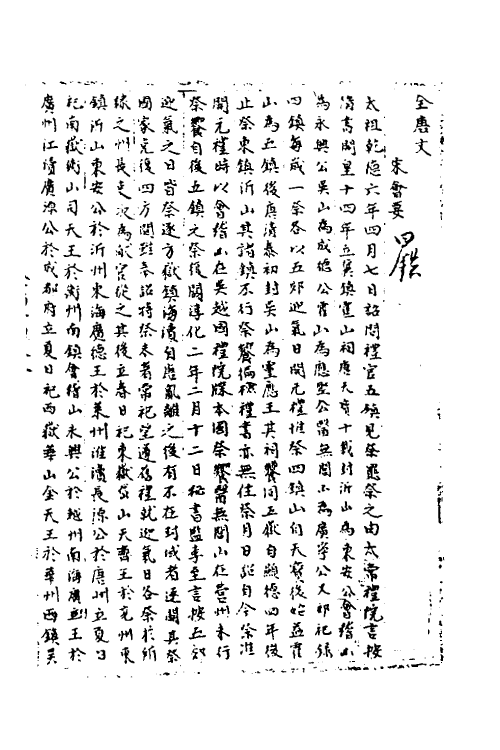 全唐文
宋會要
四鎮
太祖乾德六年四月七日詔問禮官五鎮見祭罷祭之由太常禮院言按
隋高閏皇十四年立冀鎮霍山祠唐天寶十載封沂山為東安公會稽山
為永興公吳山為成德公霍山為應聖公醫無閭山為廣寧公又郊祀錄
四鎮每歲一祭各以五郊迎氣日開元禮惟祭四鎮山自天寶後始益霍
山為五鎮後唐清泰初封吳山為靈應王其祠饗同五嶽自顯德四年後
止祭東鎮沂山其諸鎮不行祭饗徧檢禮書亦無住祭月日詔自今祭准
開元禮時以會稽山在吳越國禮院牒本國祭饗醫無閭山在營州未行
祭饗自後五鎮之祭復闕淳化二年二月十二日祕書監李至言按五郊
迎氣之日皆祭逐方嶽鎮海瀆自唐亂離之後有不在封域者遂闕其祭
國家克復四方間雖奉詔特祭未著常祀望遵舊禮就迎氣日各祭於所
隸之州長吏以次為獻官從之其後立春日祀東嶽岱山天齊王於兗州東
鎮沂山東安公於沂州東海廣德王於萊州淮瀆長源公於唐州立夏日
祀南嶽衡山司天王於衡州南鎮會稽山永興公於越州南海廣利王於
廣州江瀆廣源公於成都府立夏日祀西嶽華山金天王於華州西鎮吳